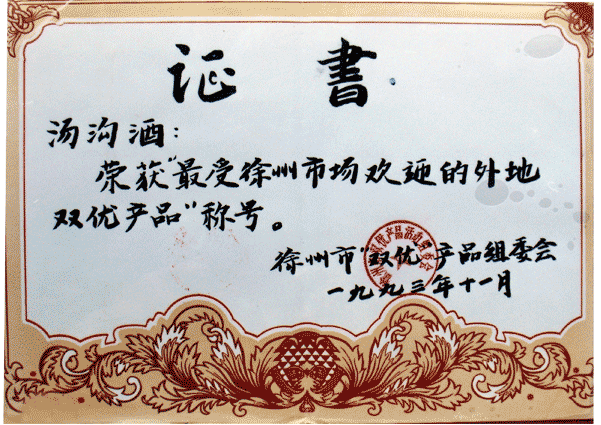 证書
汤沟酒：
荣获“最受徐州市场欢迎的外地
双优产品”称号。
徐州市“双优”产品组委会
一九九三年十一月